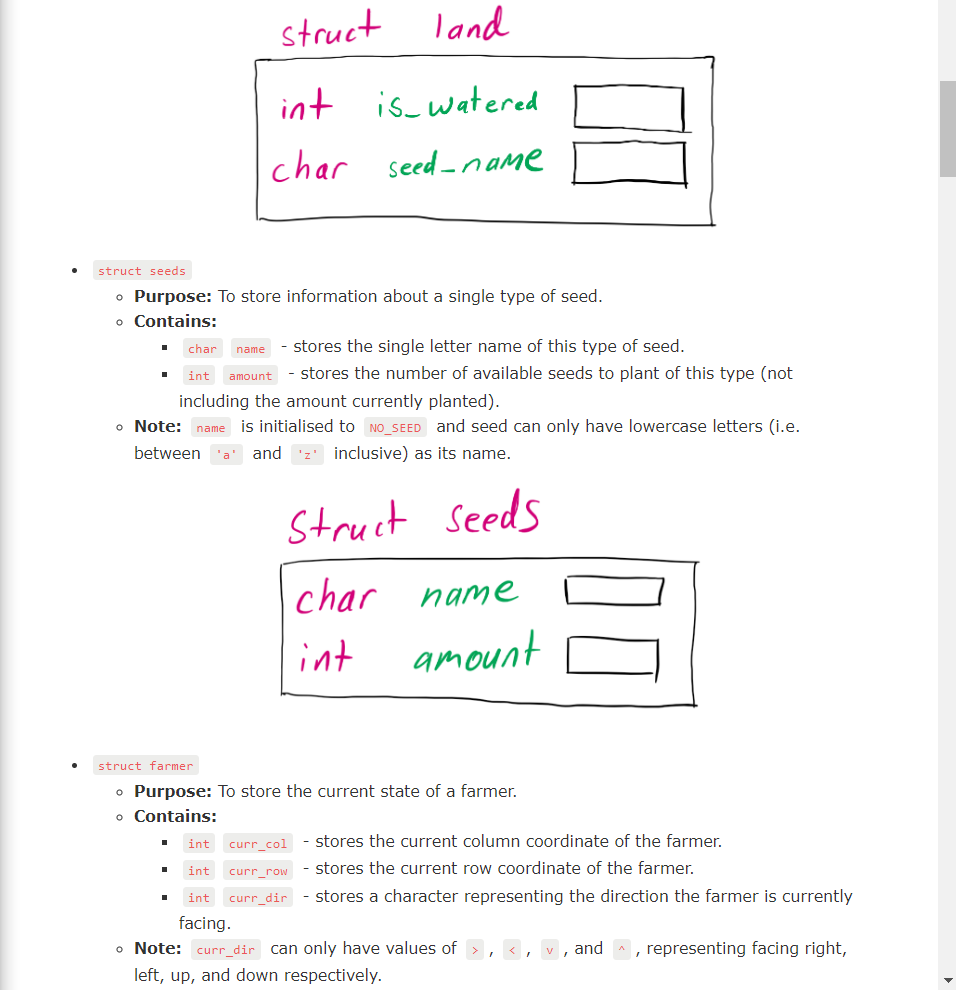 struct land
int is_watered
char seed_name
struct seeds
Purpose: To store information about a single type of seed.
Contains:
char name - stores the single letter name of this type of seed.
int amount - stores the number of available seeds to plant of this type (not
including the amount currently planted).
Note: name is initialised to NO_SEED and seed can only have lowercase letters (i.e.
between 'a' and 'z' inclusive) as its name.
Struct seeds
char name
int amount
struct farmer
Purpose: To store the current state of a farmer.
Contains:
int curr_col - stores the current column coordinate of the farmer.
int curr_row - stores the current row coordinate of the farmer.
int curr_dir - stores a character representing the direction the farmer is currently
facing.
Note: curr_dir can only have values of > , < , v , and ^ , representing facing right,
left, up, and down respectively.